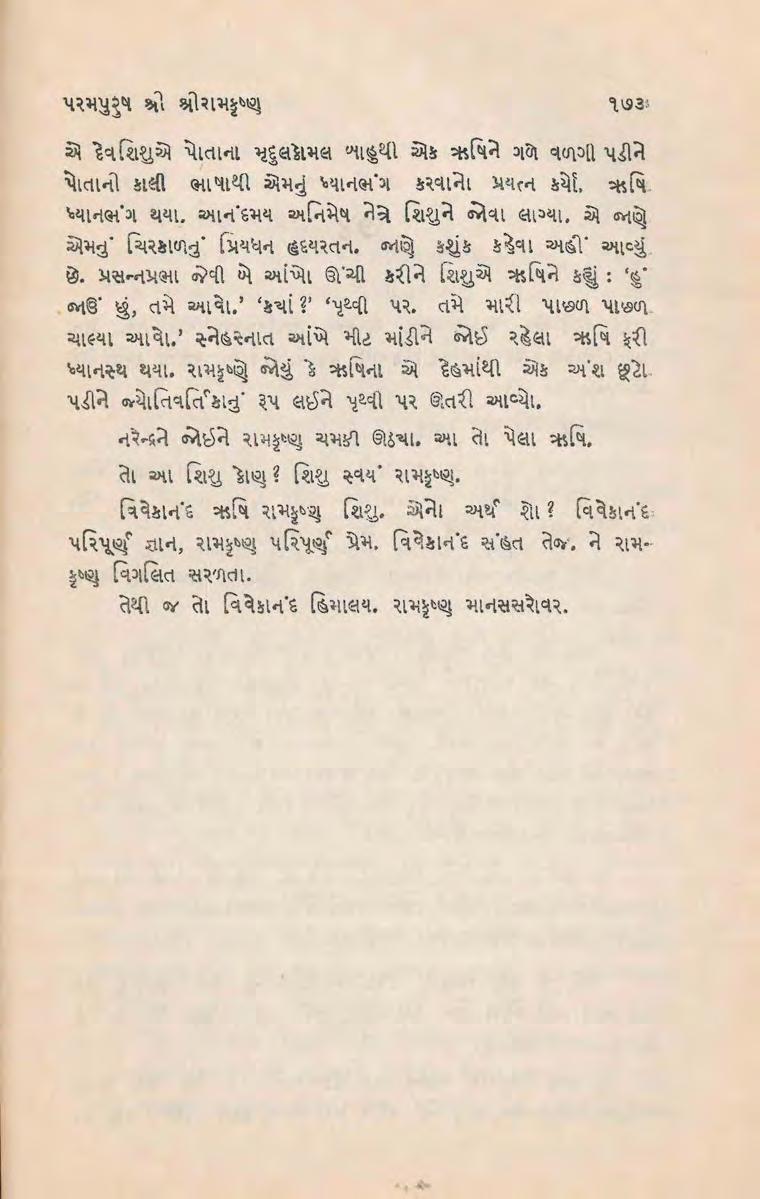 પરમપુરુષ શ્રી શ્રીરામકૃષ્ણ ૧૭૩
એ દેવશિશુએ પોતાના મૃદુલકોમલ બાહુથી એક ઋષિને ગળે વળગી પડીને
પોતાની કાલી ભાષાથી એમનું ધ્યાનભંગ કરવાનો પ્રયત્ન કર્યો. ઋષિ
ધ્યાનભંગ થયા. આનંદમય અનિમેષ નેત્રે શિશુને જોવા લાગ્યા. એ જાણે
એમનું ચિરકાળનું પ્રિયધન હૃદયરતન. જાણે કશુંક કહેવા અહીં આવ્યું
છે. પ્રસન્નપ્રભા જેવી બે આંખો ઊંચી કરીને શિશુએ ઋષિને કહ્યું : ‘હું
જાઉં છું, તમે આવો.’ ‘ક્યાં ?’ ‘પૃથ્વી પર. તમે મારી પાછળ પાછળ
ચાલ્યા આવો.’ સ્નેહસ્નાત આંખે મીટ માંડીને જોઈ રહેલા ઋષિ ફરી
ધ્યાનસ્થ થયા. રામકૃષ્ણે જોયું કે ઋષિના એ દેહમાંથી એક અંશ છૂટો
પડીને જ્યોતિવર્તિકાનું રૂપ લઈને પૃથ્વી પર ઊતરી આવ્યો.
નરેન્દ્રને જોઈને રામકૃષ્ણ ચમકી ઊઠ્યા. આ તો પેલા ઋષિ.
તો આ શિશુ કોણ ? શિશુ સ્વયં રામકૃષ્ણ.
વિવેકાનંદ ઋષિ રામકૃષ્ણ શિશુ. એનો અર્થ શો ? વિવેકાનંદ
પરિપૂર્ણ જ્ઞાન, રામકૃષ્ણ પરિપૂર્ણ પ્રેમ. વિવેકાનંદ સંહત તેજ. ને રામ-
કૃષ્ણ વિગલિત સરળતા.
તેથી જ તો વિવેકાનંદ હિમાલય. રામકૃષ્ણ માનસસરોવર.